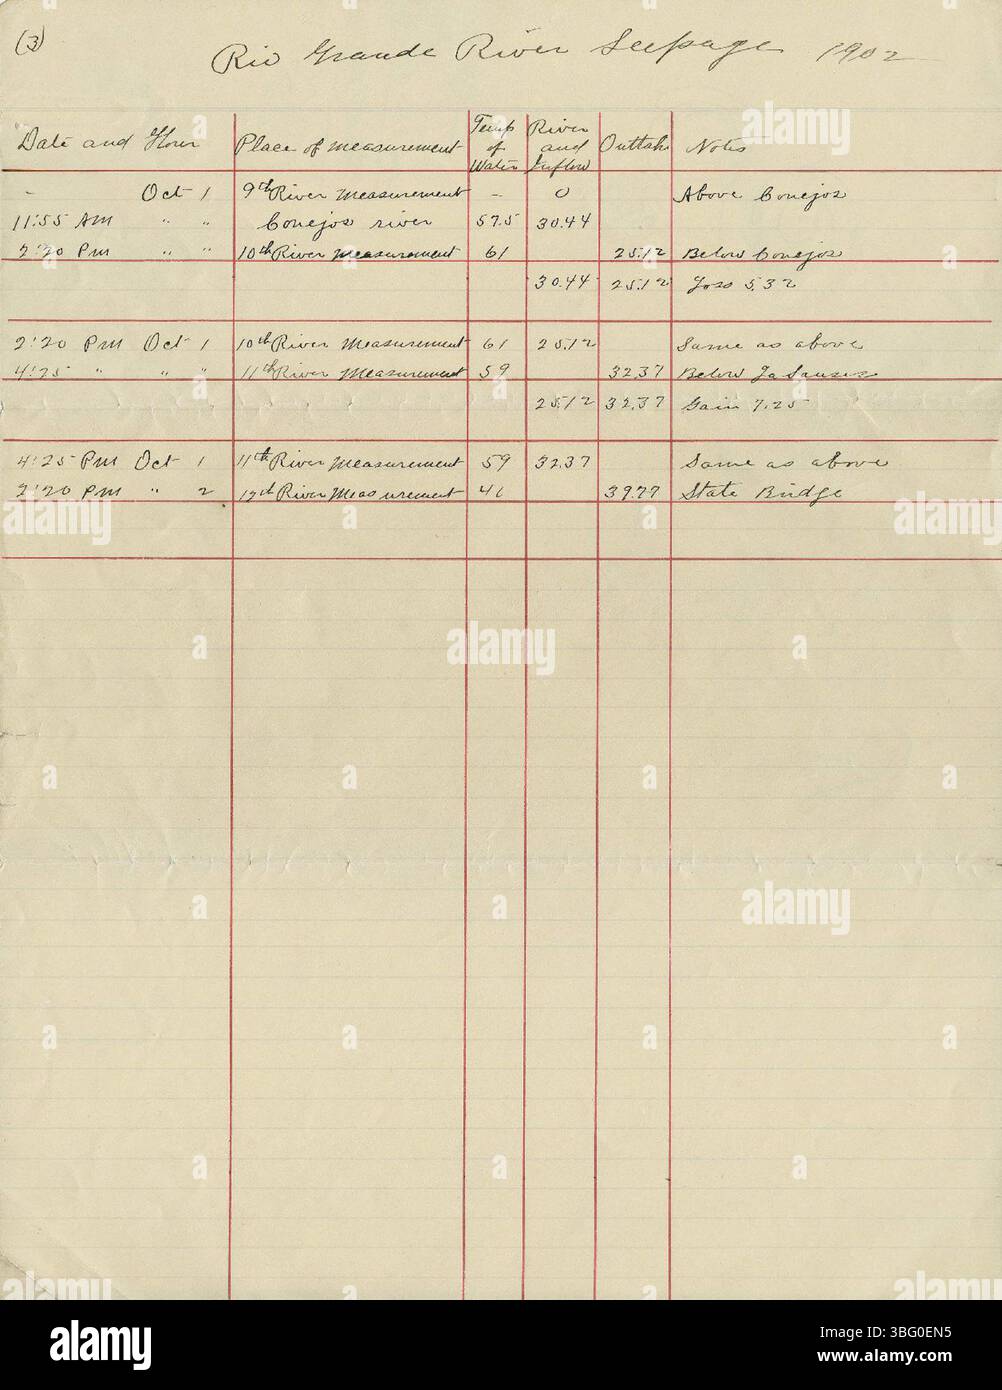 (3)
Rio Grande River Seepage 1902
Date and Hour Place of measurement Temp of Water River and Inflow Outtake Notes
- Oct 1 9th River Measurement - 0 Above Conejos
11:55 AM " " Conejos river 57.5 30.44
2:20 Pm " " 10th River Measurement 61 25.12 Below Conejos
30.44 25.12 Loss 5.32
2:20 Pm Oct 1 10th River Measurement 61 25.12 Same as above
4:25 " " " 11th River Measurement 59 32.37 Below La Sauses
25.12 32.37 Gain 7.25
4:25 Pm Oct 1 11th River Measurement 59 32.37 Same as above
2:20 Pm " 2 12th River Measurement 41 39.77 State Bridge
alamy
Image ID: 3BG0EN5
www.alamy.com